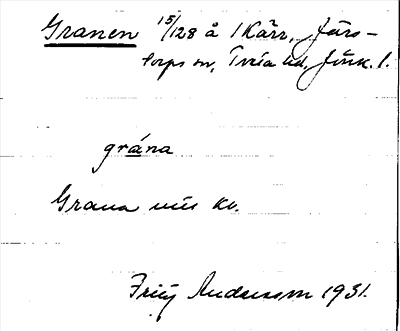 Granen 15/128 å 1 Kärr, Järs-
torps sn, Tveta hd, Jönk. l.
grána
Grana uti kv.
Fritz Andersson 1931.